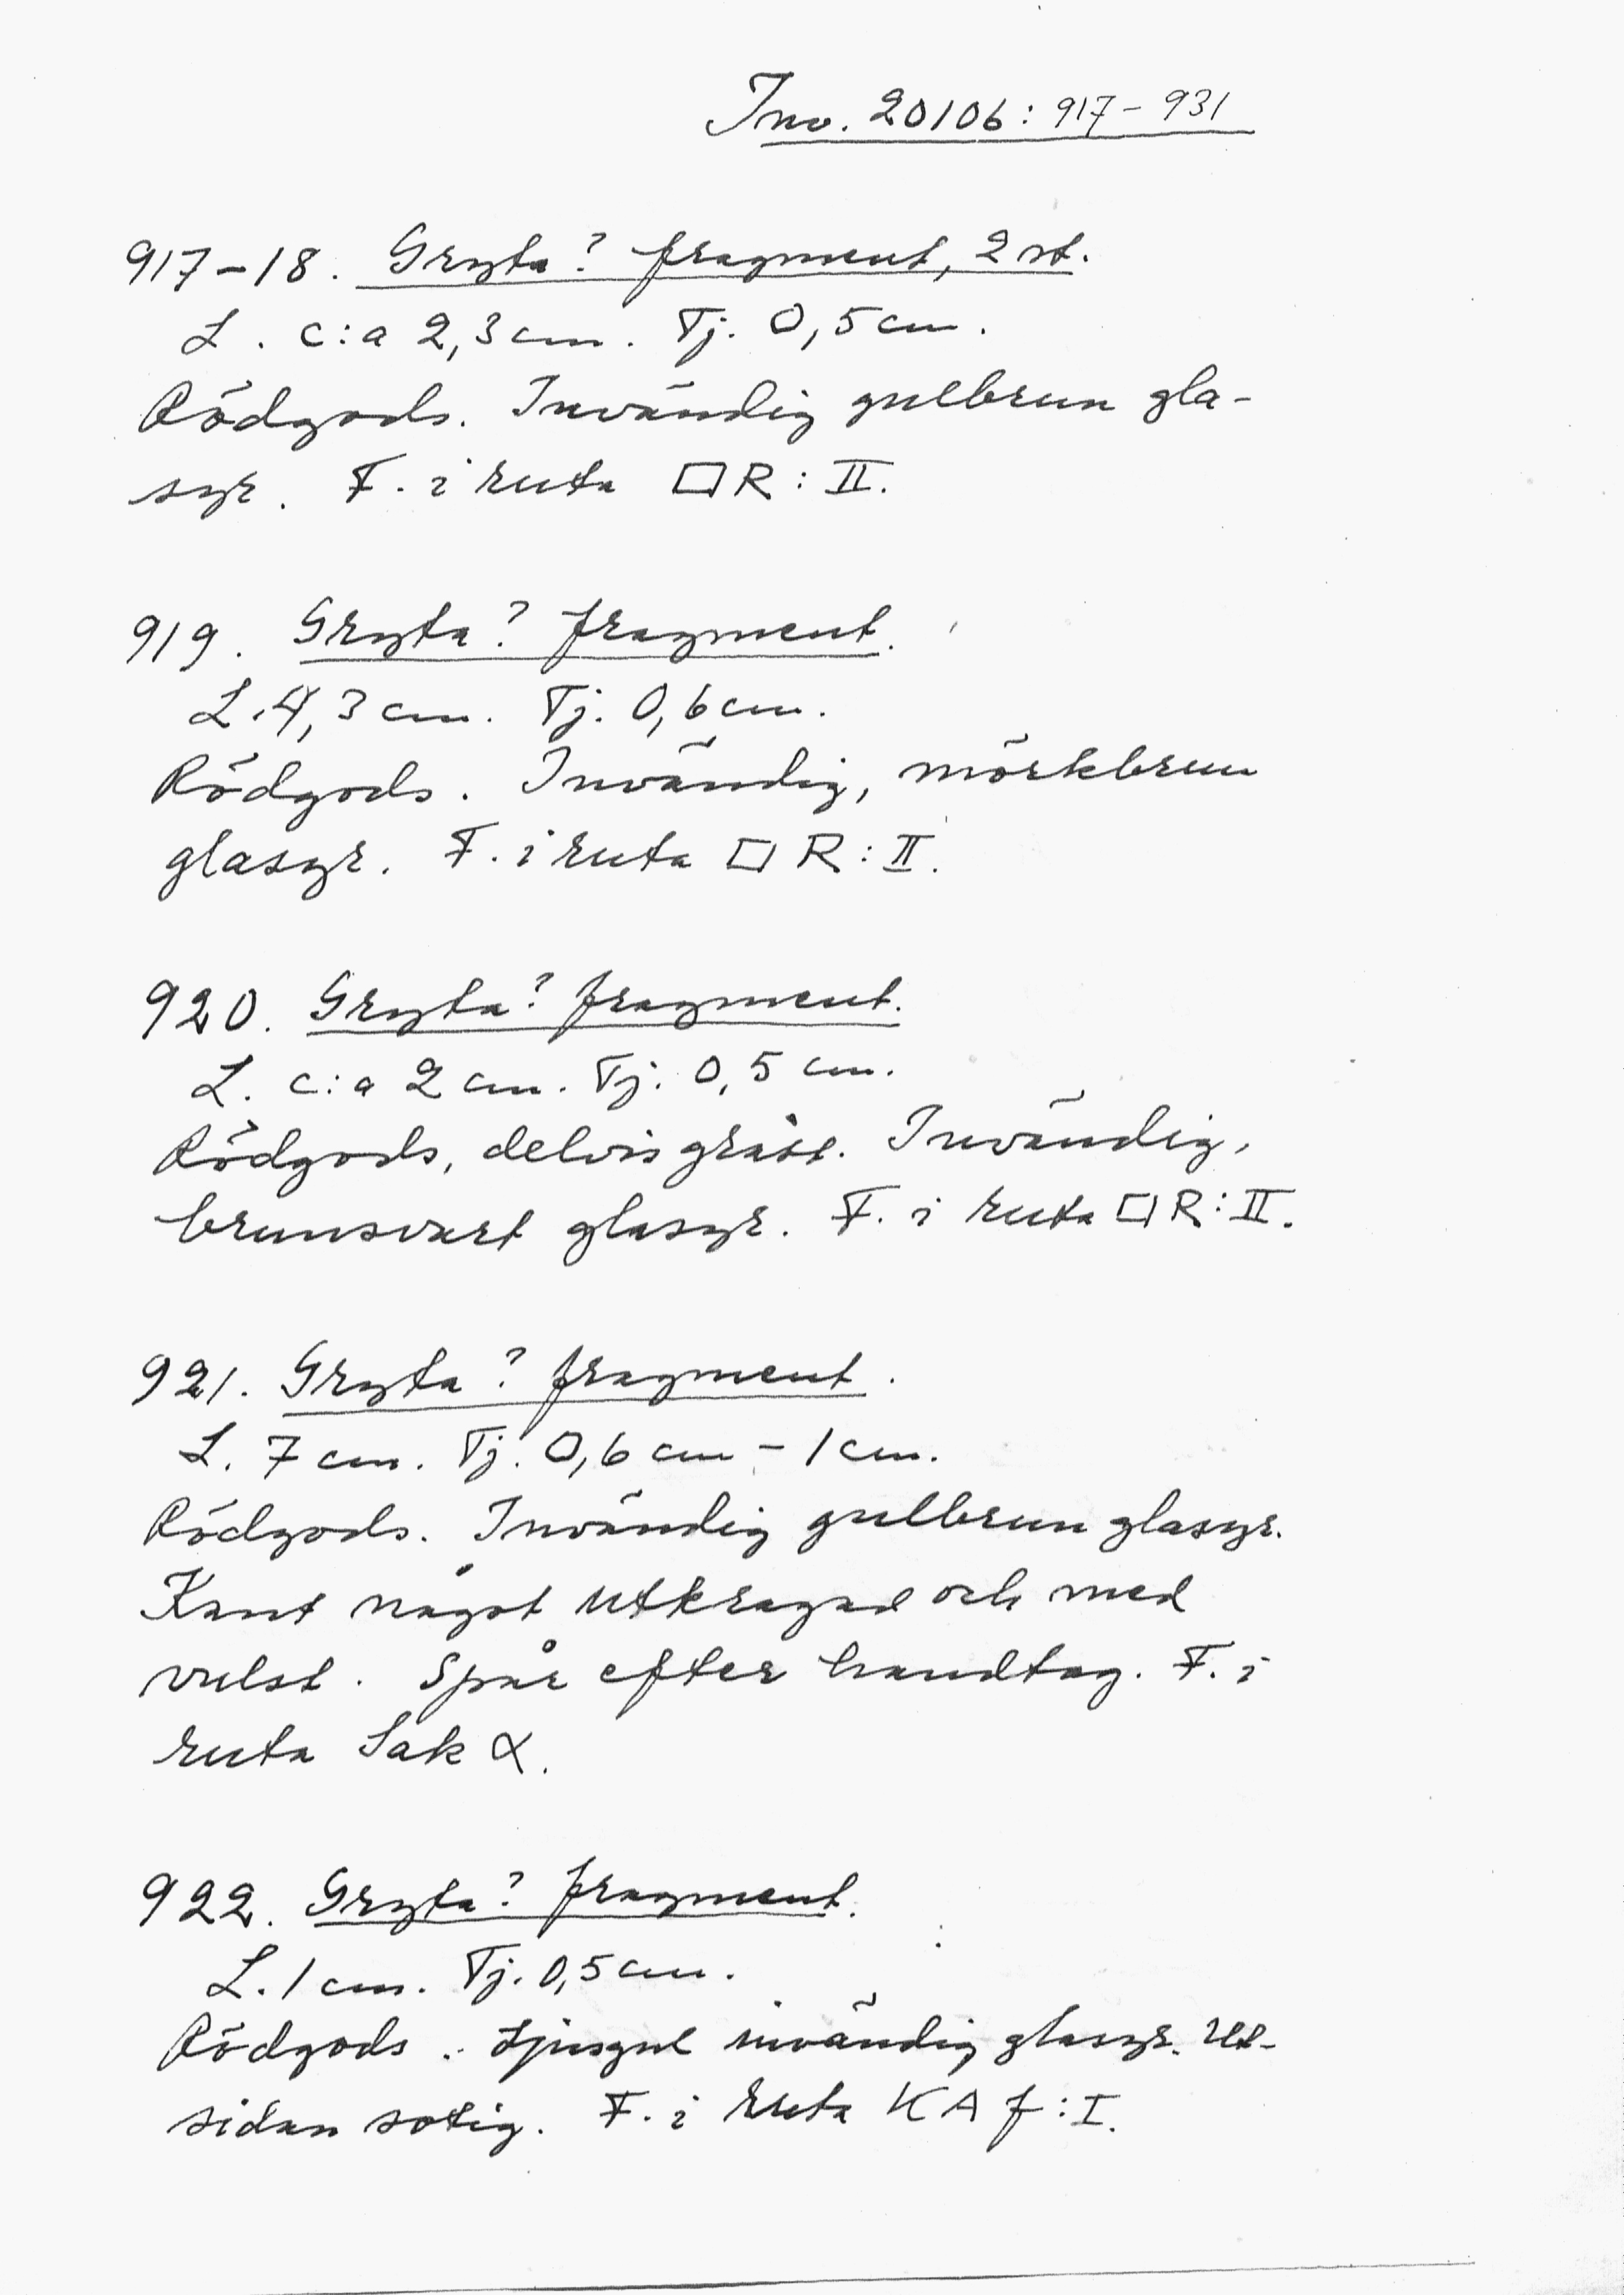 Inv. 20106: 917-931
917-18. Gryta? fragment, 2 st.
L. c:a 2,3 cm. Tj. 0,5 cm.
Rödgods. Invändig gulbrun gla-
syr. F. i ruta □ R: II.
919. Gryta? fragment.
L. 4,3 cm. Tj. 0,6 cm.
Rödgods. Invändig, mörkbrun
glasyr. F. i ruta □ R: II.
920. Gryta? fragment.
L. c:a 2 cm. Tj. 0,5 cm.
Rödgods, delvis grått. Invändig,
brunsvart glasyr. F. i ruta □ R: II.
921. Gryta? fragment.
L. 7 cm. Tj. 0,6 cm - 1 cm.
Rödgods. Invändig gulbrun glasyr.
Kant något utkragad och med
vulst. Spår efter handtag. F. i
ruta Sak α.
922. Gryta? fragment.
L. 1 cm. Tj. 0,5 cm.
Rödgods. Ljusgul invändig glasyr. Ut-
sidan sotig. F. i ruta KA f: I.